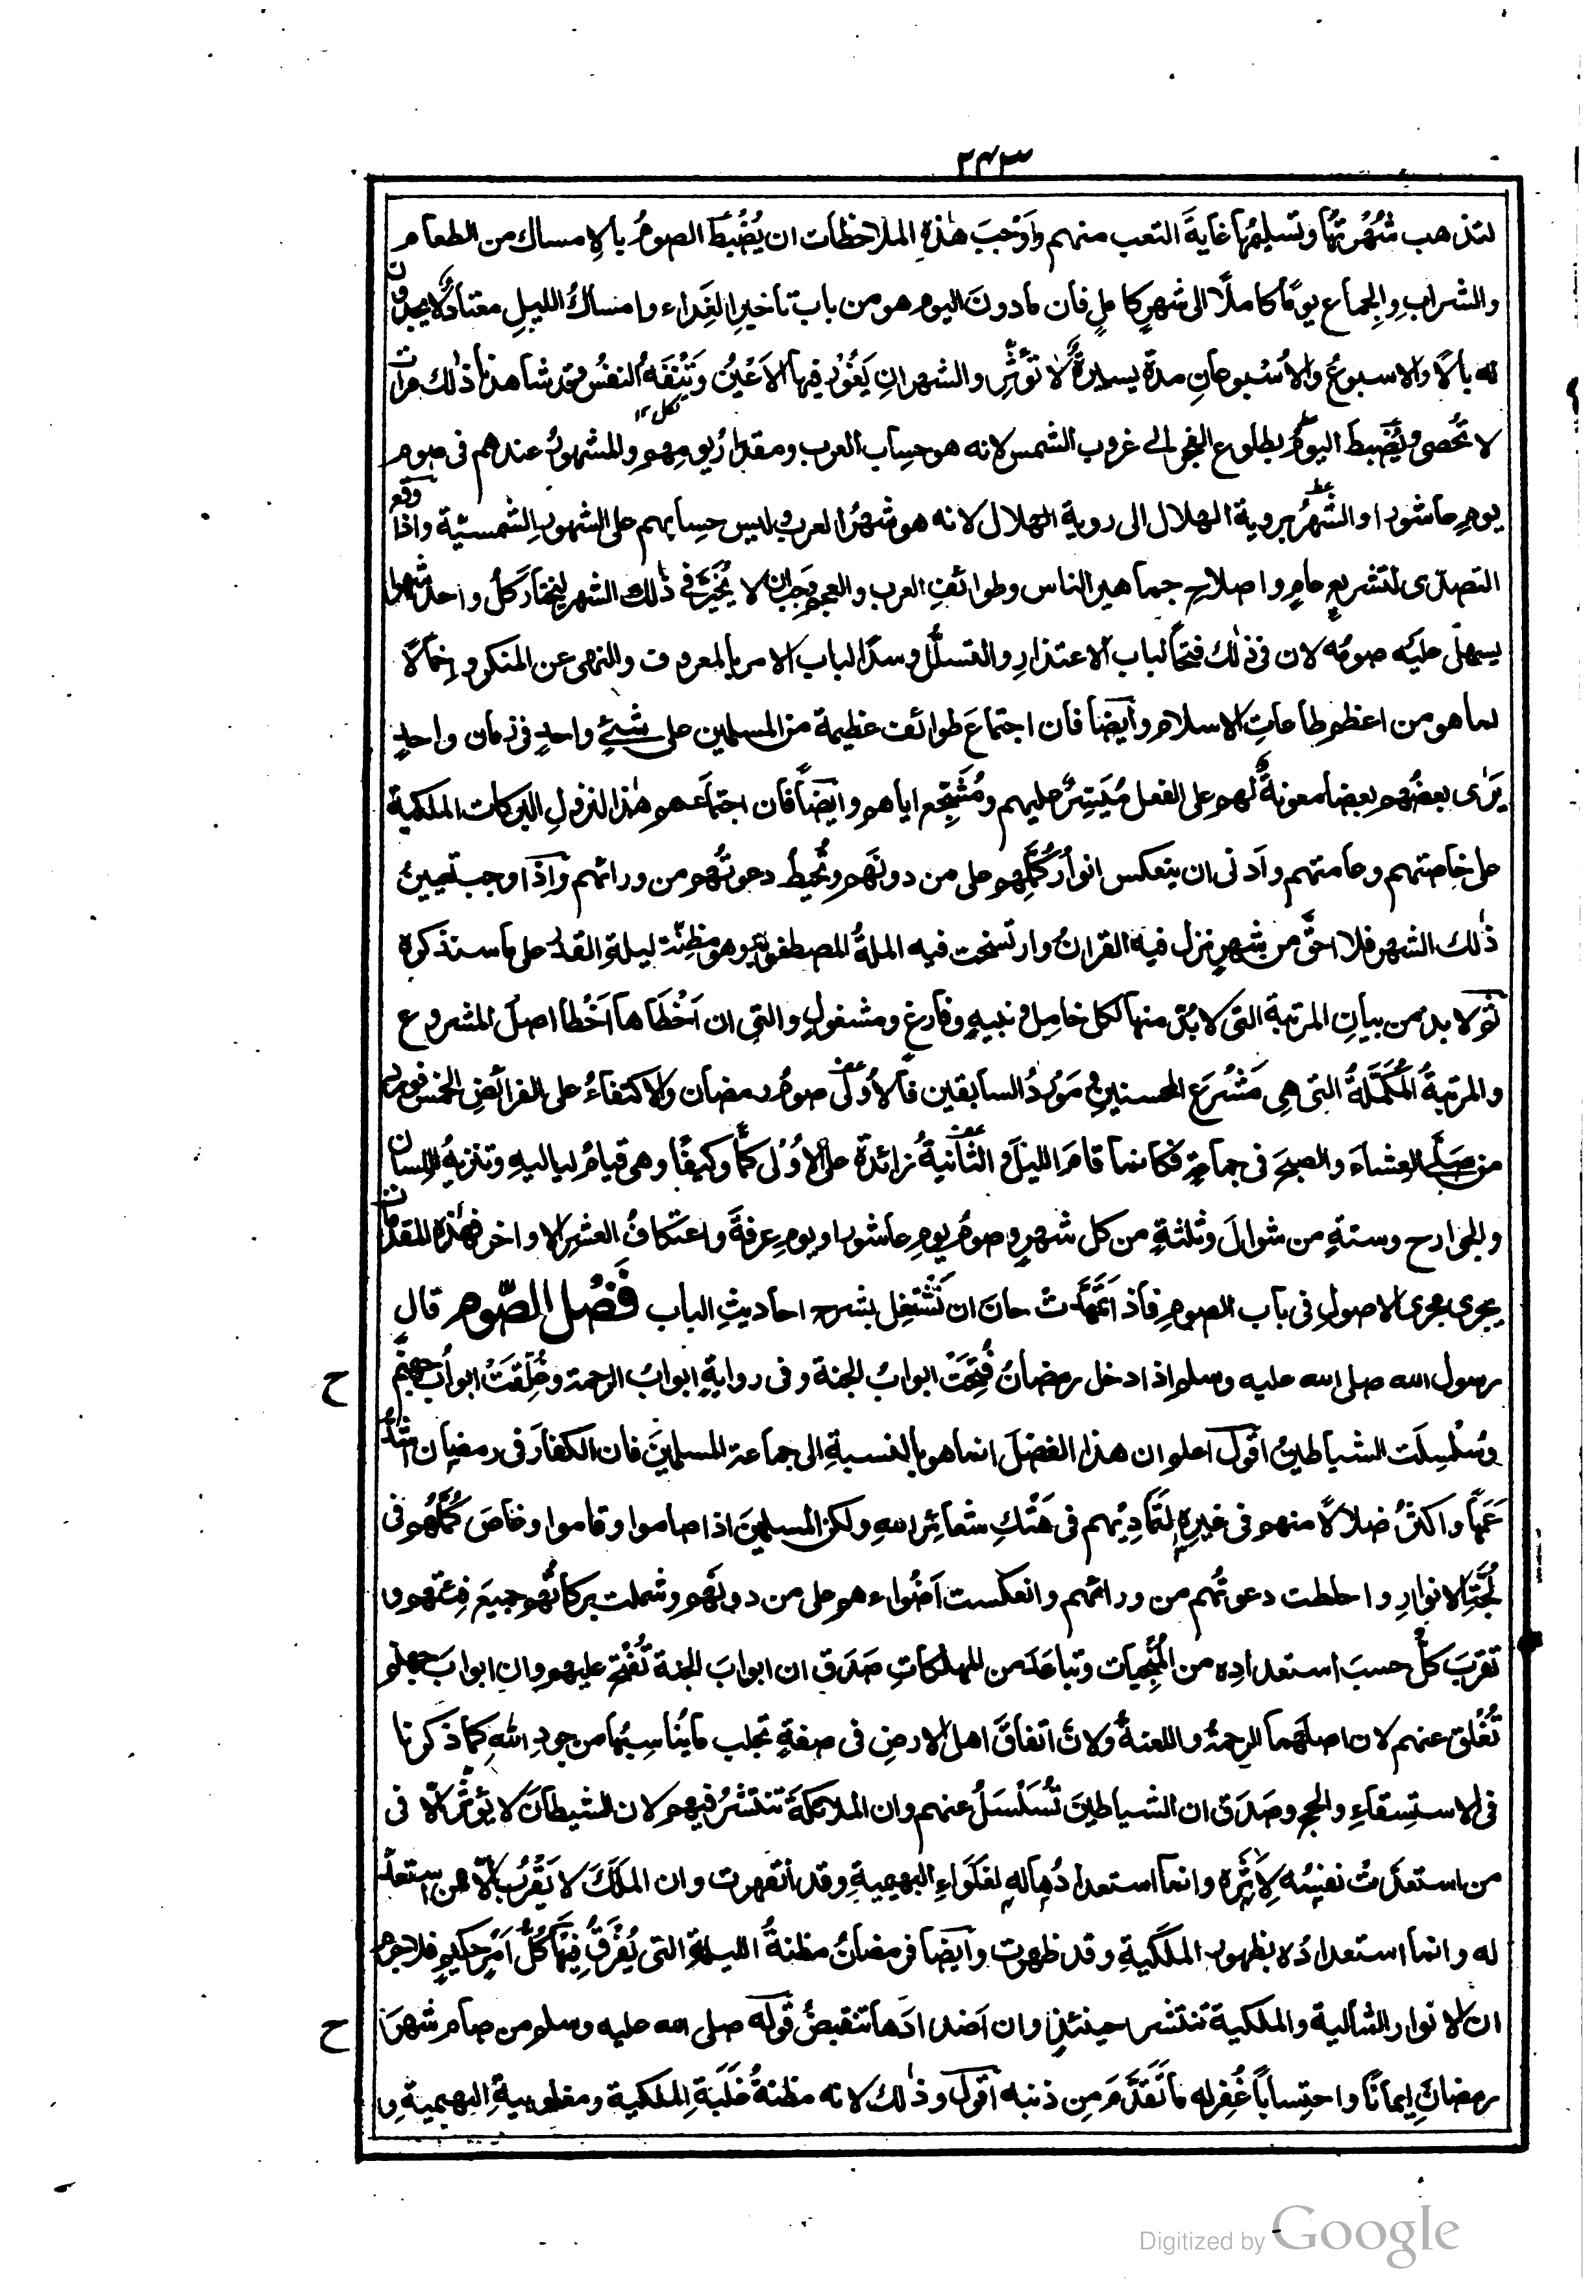 ۲۴۳
لتذهب شُهْرتُها وتسليمُها غايةَ التعب منهم وأَوْجَبَ هٰذه الملاحظات ان يُضْبَطَ الصومُ بالإمساك من الطعام
والشراب والجماع يومًا كاملًا الى شهرٍ كاملٍ فان مادونَ اليوم هو من باب تأخيرِ الغِداء وامساكُ الليلِ معتادٌ لا يجدون
له بالًا والاسبوعُ والاُسْبوعانِ مدةٌ يسيرةٌ لا تُؤَثِّر والشهرانِ يَغُوْر فيها الاَعْيُنُ وتَنْفَهُ النفسُ وقد شاهدنا ذٰلك مرات
تكل ۱۲
لا تُحصى ويُضْبط اليومُ بطلوع الفجر الى غروب الشمس لانه هو حِساب العرب ومقدارُ يومِهم والمشهورُ عندهم فى صوم
يوم عاشورا والشهرُ بروية الهلال الى روية الهلال لانه هو شهرُ العرب وليس حِسابهم على الشهورِ الشمسيّة واذا وقع
التصدّى لتشريعٍ عامٍ واصلاحِ جماهير الناس وطوائفِ العرب والعجم وَجَبَ ان لا يُخَيَّرَ فى ذٰلك الشهر ليختارَ كلُ واحد شهرا
يسهل عليه صومُه لان فى ذٰلك فتحًا لباب الاعتذارِ والتسلُّل وسدًّا لباب الامر بالمعروف والنهى عن المنكر واِخمالًا
لما هو من اعظم طاعاتِ الاسلام وأيضا فان اجتماعَ طوائف عظيمة من المسلمين على شيئٍ واحدٍ فى زمان واحدٍ
يَرٰى بعضُهم بعضا معونةٌ لهم على الفعل مُيَسِّرٌ عليهم ومُشَجِّع اياهم وايضًا فان اجتماعَهم هٰذا لنزولِ البركات الملكية
على خاصتهم وعامتهم وادنى ان ينعكس انوارُ كُمَّلِهم على من دونَهم وتُحيطَ دعوتُهم من ورائهم واذا وجب تعيينُ
ذٰلك الشهر فلا احقَّ من شهرٍ نزل فيه القرانُ وارتسخت فيه الملةُ المصطفوية وهو مظِنّة ليلةِ القدر على ما سنذكره
ثم لا بد من بيانِ المرتبة التى لا بُدّ منها لكل خاملٍ ونبيهٍ وفارغٍ ومشغولٍ والتى ان اَخْطَأها اَخْطأ اصلَ المشروع
والمرتبةُ المُكَمِّلةُ التى هى مَشْرَعُ المحسنين ومَوْرِدُ السابقين فالاُولٰى صومُ رمضان والاكتفاءُ على الفرائضِ الخمسِ فورد
من صلّى العشاءَ والصبحَ فى جماعةٍ فكانما قامَ الليلَ والثّانيةُ زائدة على الاُوْلى كمًّا وكيفًا وهى قيامُ لياليهِ وتنزيهُ اللسان
والجوارح وستةٍ من شوالَ وثلثةٍ من كل شهرٍ وصومُ يومِ عاشورا ويومِ عرفةَ واعتكافُ العشرِ الاواخر فهٰذه المقدمات
يجرى مجرى الاصولِ فى باب الصومِ فاذ اتَمَهَّدَتْ حانَ ان نَشْتَغِل بشرح احاديثِ الباب فَضْلُ الصّوم قال
ح رسول الله صلى الله عليه وسلم اذا دخل رمضانُ فُتِحَتْ ابوابُ الجنة وفى روايةٍ ابوابُ الرحمة وغُلِّقَتْ ابوابُ جهنّم
وسُلْسِلَت الشياطينُ اقولُ اعلم ان هذا الفضلَ انما هو بالنسبةِ الى جماعة المسلمينَ فان الكفارَ فى رمضان اشدُّ
عَمَهًا واكثرُ ضلالًا منهم فى غيرِه لتَمَادِيْهم فى هَتْكِ شعائرِ اللهِ ولكن المسلمينَ اذا صاموا وقاموا وغاصَ كُمَّلُهم فى
لُجَّةِ الانوارِ واحاطت دعوتُهم من ورائهم وانعكست اَضْواءهم على من دونَهم وشملت بركاتُهم جميعَ فِئتهم و
تقربَ كلٌّ حسبَ استعدادِه من المُنْجيات وتباعدَ من المهلكاتِ صَدَق ان ابوابَ الجنة تُفْتح عليهم وان ابوابَ جهنم
تُغْلق عنهم لان اصلَهما الرحمةُ واللعنةُ ولانّ اتفاقَ اهل الارضِ فى صفةٍ تجلب ما يُناسِبُها من جودِ اللهِ كما ذكرنا
فى الاستسقاءِ والحج وصَدَق ان الشياطينَ تُسَلْسَلُ عنهم وان الملائكةَ تنتشرُ فيهم لان الشيطانَ لا يُؤثِّر الّا فى
من استعدَّتْ نفسُه لِاَثَرِه وانما استعدادُها له لغَلَواءِ البهيميةِ وقد انقهرت وان المَلَكَ لا يَقْرُب الّا ممن استعدّ
له وانما استعدادُه بظهور الملَكيةِ وقد ظهرت وأيضًا فرمضانُ مظنةُ الليلةِ التى يُفْرَقُ فِيْهَا كُلُّ اَمْرٍ حَكِيْمٍ فلا جرم
ح ان الانوار المثالية والملكية تنتشر حينئذٍ وان اضدادَها تنقبضُ قوله صلى الله عليه وسلم من صام شهرَ
رمضانَ إيمانًا واحتِسابًا غُفِر له ما تَقَدَّمَ مِن ذنبه اقول وذٰلك لانه مظنةُ غلَبَةِ الملكية ومغلوبيةِ البهيمية و
Digitized by Google